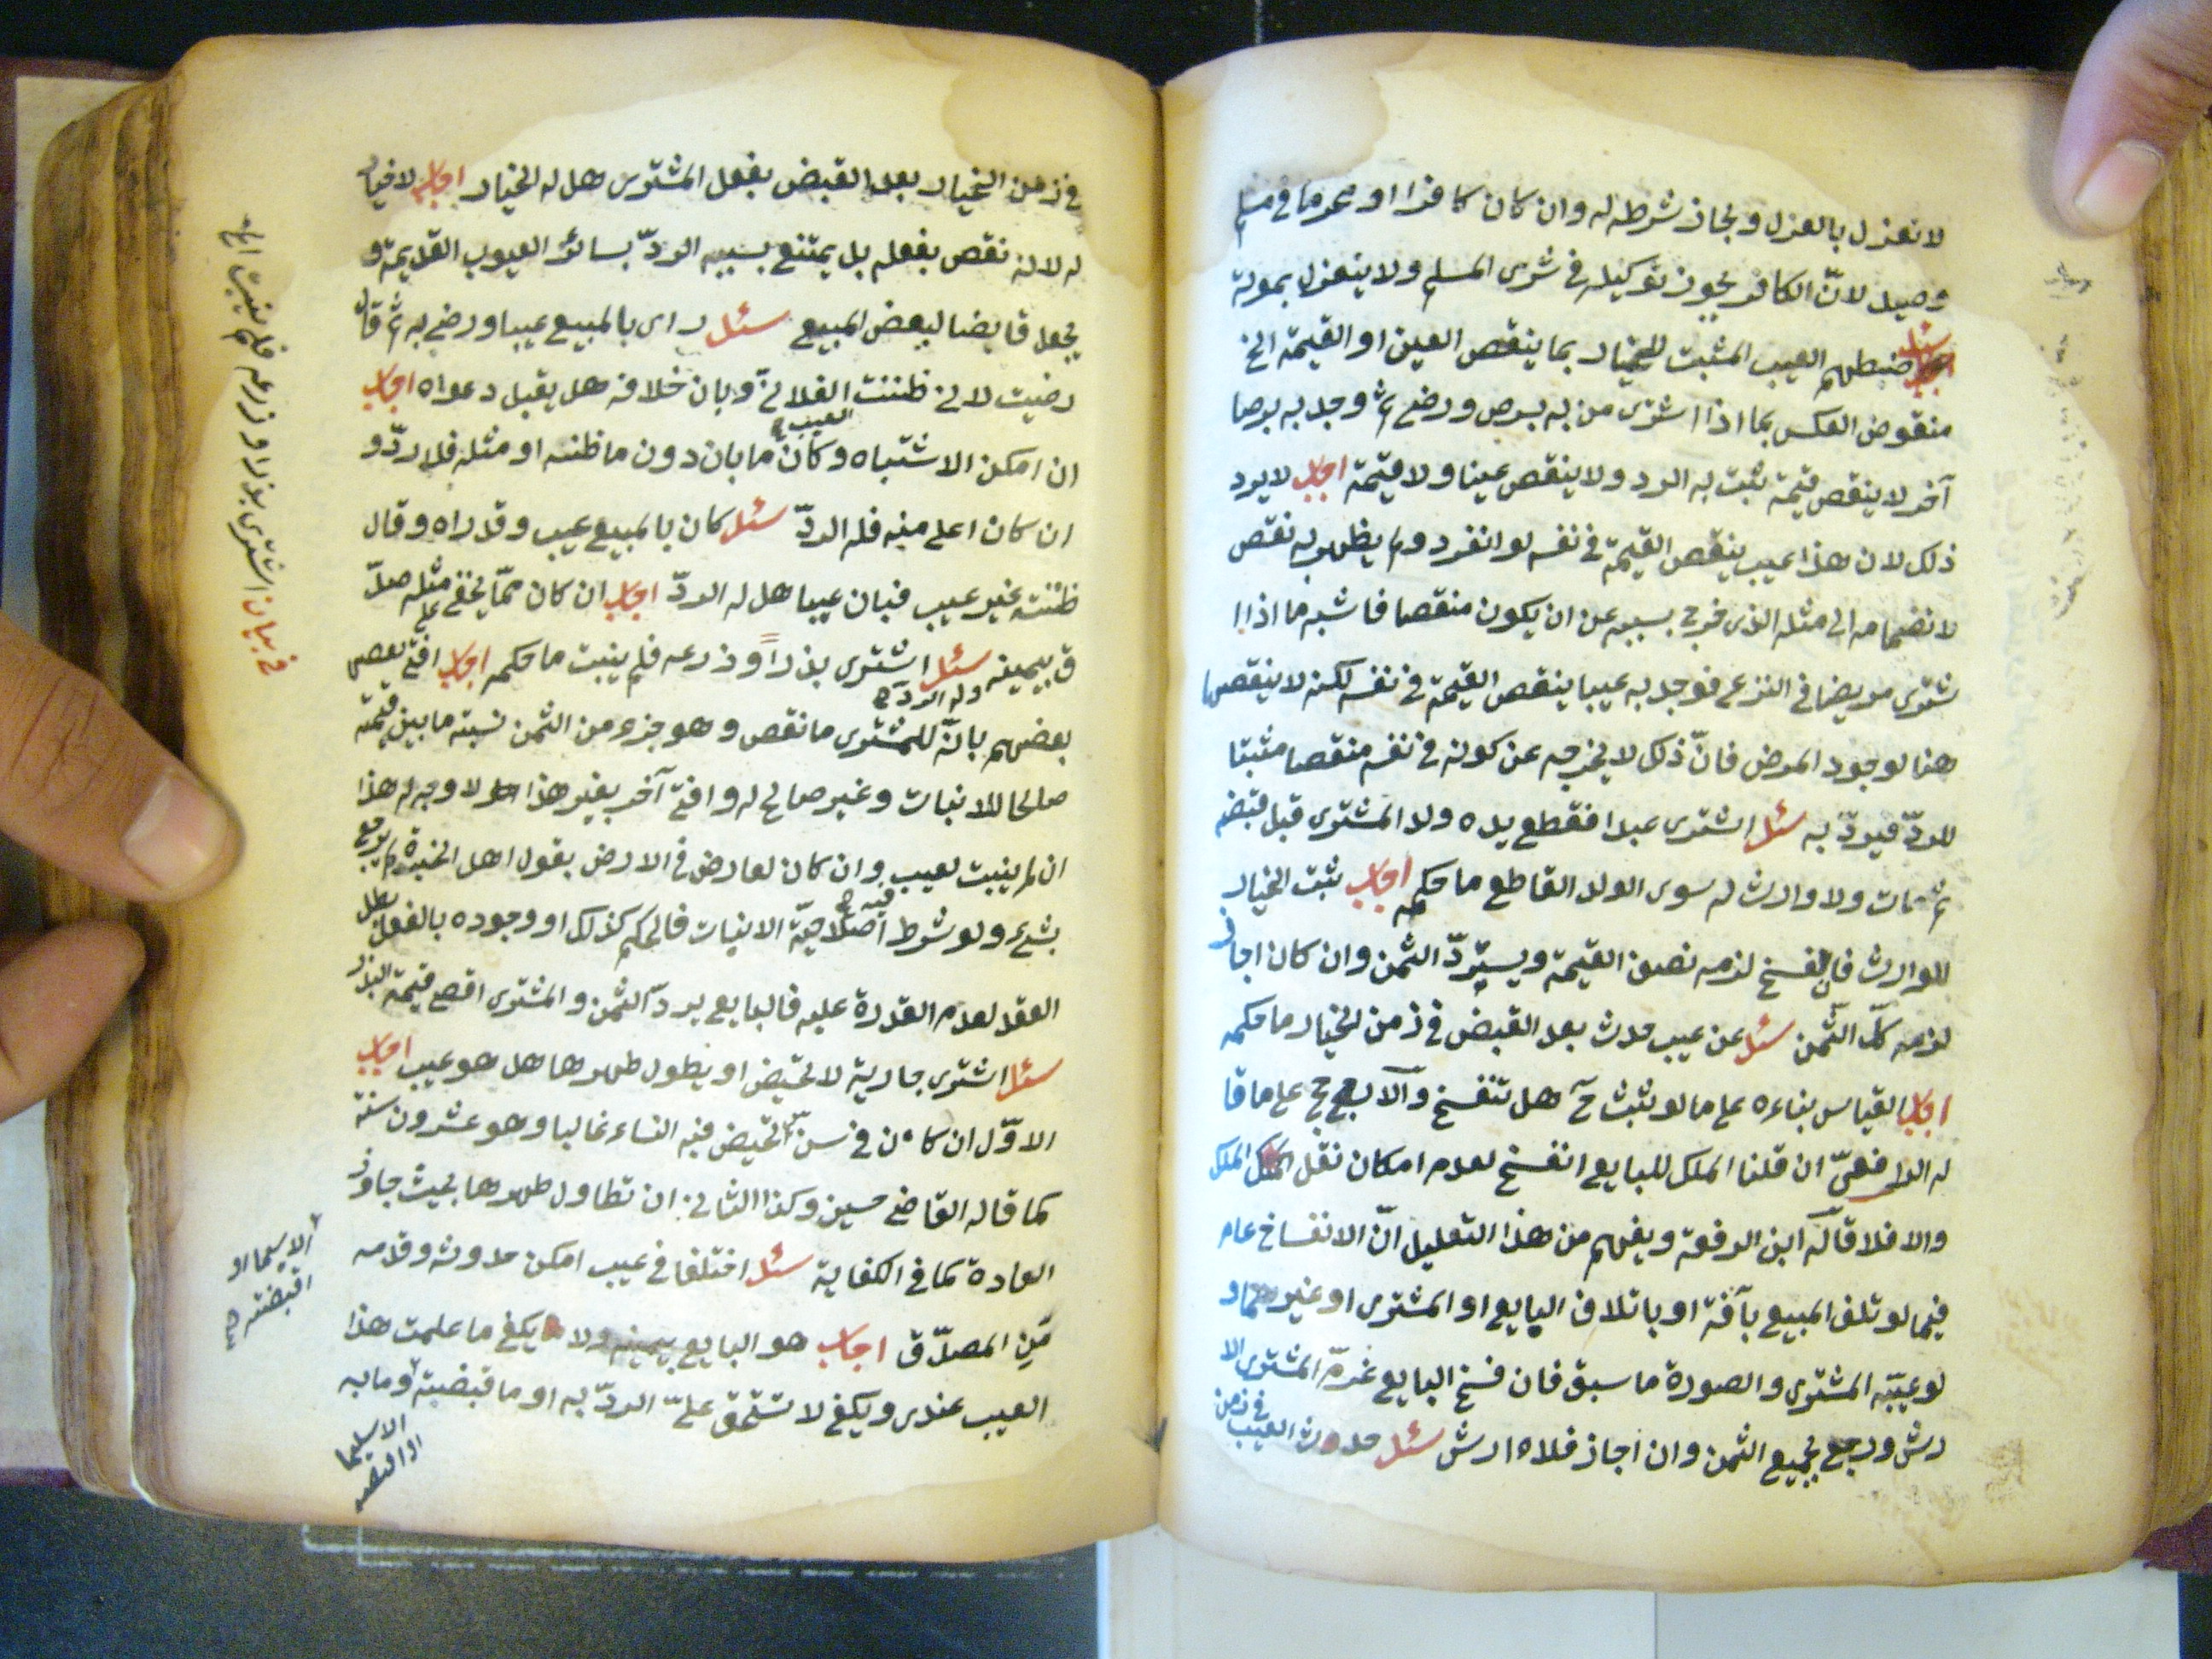 لانعزل بالعزل ولجاز شرطه له وان كان كافرا او محرما في مسلم
وصيد لانّ الكافر يجوز توكيله في شرى المسلم ولا ينعزل بموته
سئل ضبطهم العيب المثبت للخيار بما ينقص العين او القيمة الخ
منقوض العكس بما اذا اشترى من به برص ورضي ثم وجد به برصا
آخر لا ينقص قيمة يثبت به الرد ولا ينقص عينا ولا قيمة اجاب لا يرد
ذلك لان هذا عيب ينقص القيمة في نفسه لو انفرد ولم يظهر به نقص
لانضمامه الى مثله الذي خرج بسببه عن ان يكون منقصا فاشبه ما اذا ا
شترى مريضا في النزع فوجد به عيبا ينقص القيمة في نفسه لكنه لا ينقصها
هنا لوجود المرض فانّ ذلك لا يخرجه عن كونه في نفسه منقصا مثبتا
للردّ فيردّ به سئل اشترى عبدا فقطع يده ولد المشترى قبل قبضه
ثم مات ولا وارث له سوى الولد القاطع ما حكمه اجاب يثبت الخيار
للوارث فان فسخ لزمه نصف القيمة ويستردّ الثمن وان كان اجاز
لزمه كلّ الثمن سئل عن عيب حدث بعد القبض في زمن الخيار ما حكمه
اجاب القياس بناءه على ما لو تلف ح هل تنفسخ والاصح ح على ما قا
له الرافعيّ ان قلنا الملك للبايع انفسخ لعدم امكان نقل الملك
والا فلا قاله ابن الرفعة ويفهم من هذا التعليل انّ الانفساخ عام
فيما لو تلف المبيع بآفة او باتلاف البايع او المشترى او غيرهما و
لو عيّبه المشترى والصورة ما سبق فان فسخ البايع غرمّ المشترى الا
رش ورجع بجميع الثمن وان اجاز فلا ارش سئل حدوث العيب في زمن
في زمن الخيار بعد القبض بفعل المشترى هل له الخيار اجاب لا خيار
له لانه نقص بفعله بل يمتنع بسببه الردّ بسائر العيوب القديمة و
يجعل قابضا لبعض المبيع سئل راى بالمبيع عيبا ورضي به ثم قال
رضيت لاني ظننت الفلاني وبان خلافه هل يقبل دعواه اجاب
ان امكن الاشتباه وكان العيب ما بان دون ما ظنه او مثله فلا ردّ و
ان كان اعلى منه فله الردّ سئل كان بالمبيع عيب وقد راه وقال
ظننته غير عيب فبان عيبا هل له الردّ اجاب ان كان ممّا يخفى على مثله صدّ
ق بيمينه وله الردّ سئل اشترى بذرا وزرعه فلم ينبت ما حكمه اجاب افتى بعض
بعضهم بانّه للمشترى ما نقص وهو جزء من الثمن نسبته ما بين قيمته
صالحا للانبات وغير صالح له وافتى آخر بغير هذا ولا وجه له هذا
ان لم ينبت لعيب وان كان لعارض في الارض بقول اهل الخبرة لم يرجع
بشيء ولو شرط فيه صلاحيّة الانبات فالحكم كذلك او وجوده بالفعل بطل
العقد لعدم القدرة عليه فالبايع يردّ الثمن والمشترى اقصى قيمة البذر
سئل اشترى جارية لا تحيض او يطول طهرها هل هو عيب اجاب
الاوّل ان كان في سن تحيض فيه النساء غالبا وهو عشرون سنة
كما قاله القاضي حسين وكذا الثاني ان تطاول طهرها بحيث جاوز
العادة كما في الكفاية سئل اختلفا في عيب امكن حدوثه وقدمه
مَنِ المصدّق اجاب هو البايع بيمينه ولا يكفي ما علمت هذا
العيب عندى ويكفي لا تستحق علىّ الردّ به او ما قبضته وما به
في بيان اشترى بذرا وزرعه فلم ينبت الخ
الا سليما او
اقبضته
الا سليما